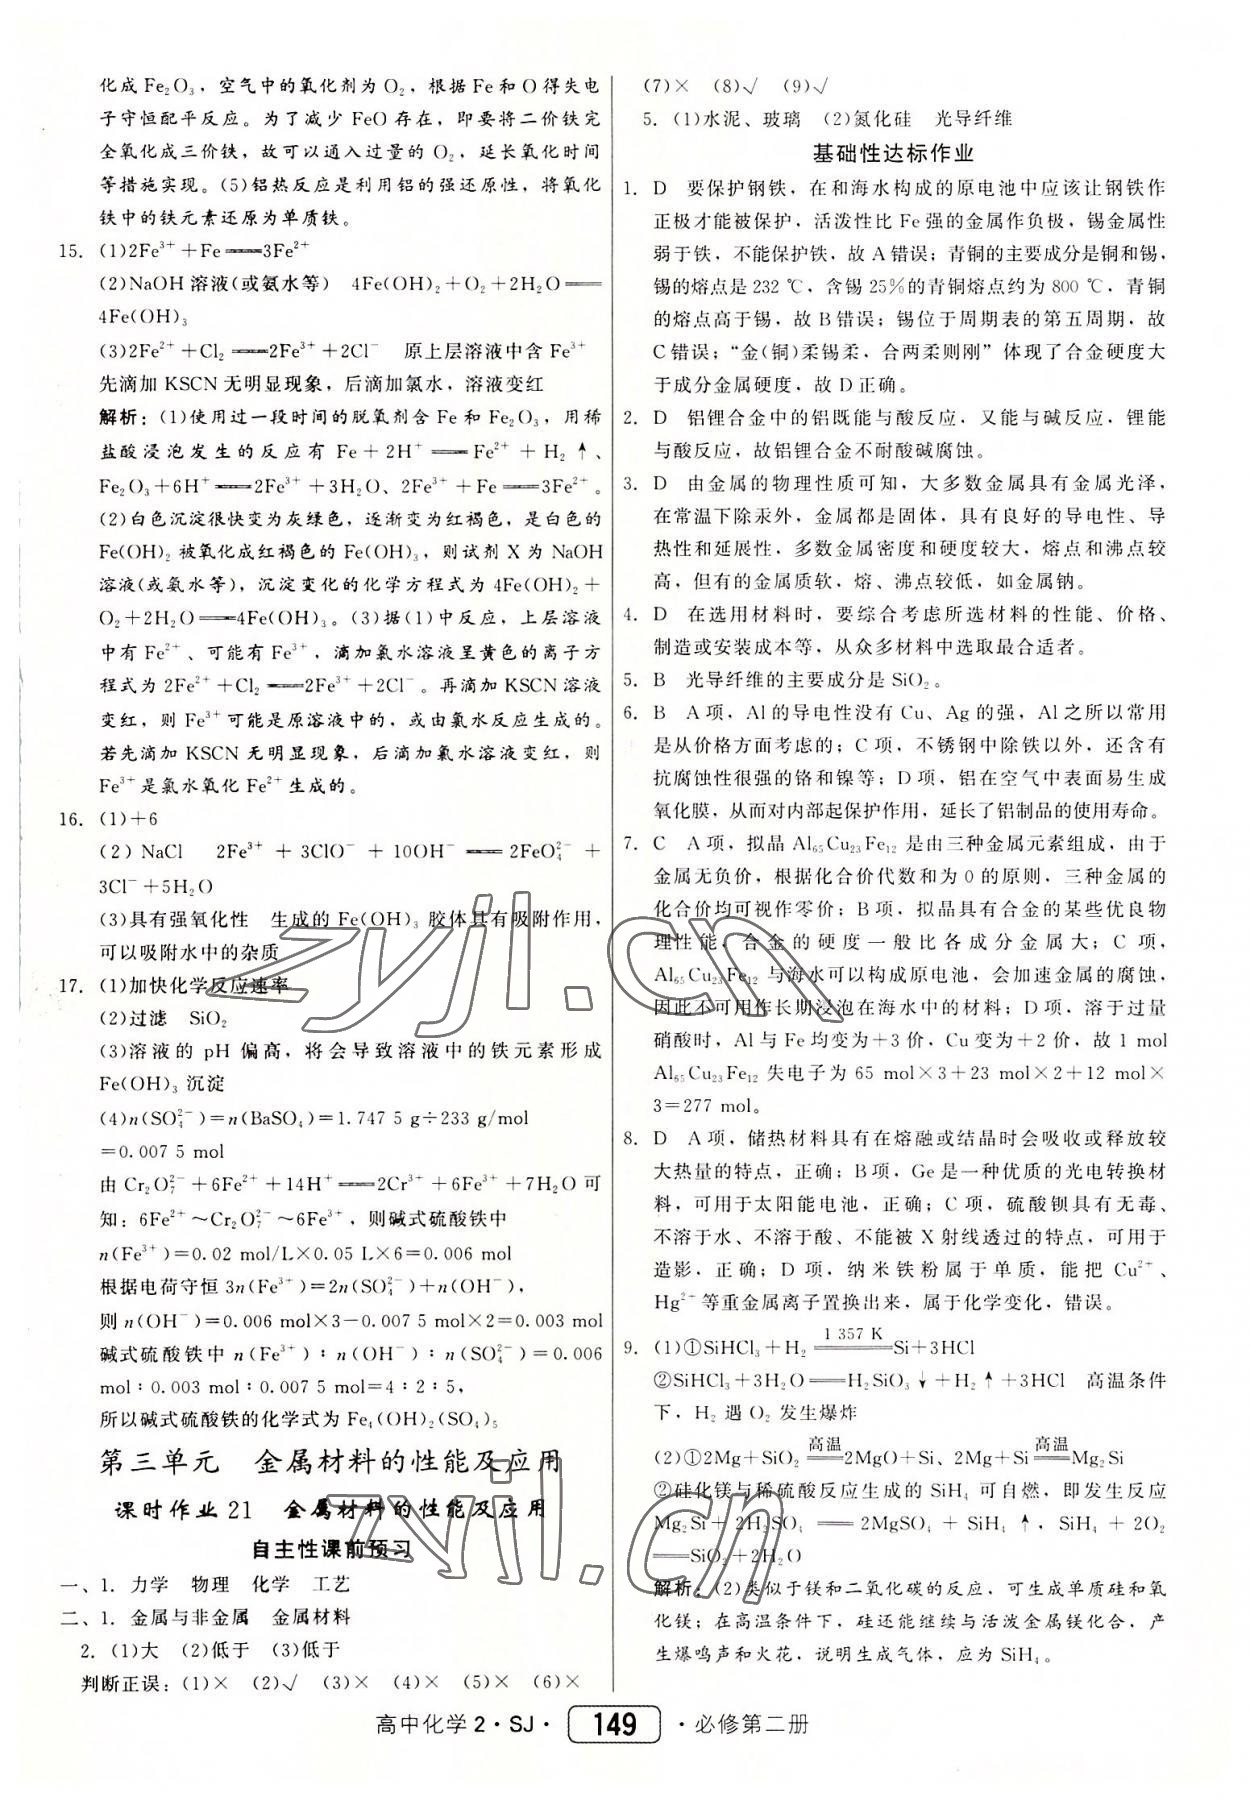 化成 Fe₂O₃，空气中的氧化剂为 O₂，根据 Fe 和 O 得失电
子守恒配平反应。为了减少 FeO 存在，即要将二价铁完
全氧化成三价铁，故可以通入过量的 O₂，延长氧化时间
等措施实现。(5)铝热反应是利用铝的强还原性，将氧化
铁中的铁元素还原为单质铁。
15. (1)2Fe³⁺＋Fe══3Fe²⁺
(2)NaOH 溶液(或氨水等)　4Fe(OH)₂＋O₂＋2H₂O══
4Fe(OH)₃
(3)2Fe²⁺＋Cl₂══2Fe³⁺＋2Cl⁻　原上层溶液中含 Fe³⁺
先滴加 KSCN 无明显现象，后滴加氯水，溶液变红
解析：(1)使用过一段时间的脱氧剂含 Fe 和 Fe₂O₃，用稀
盐酸浸泡发生的反应有 Fe＋2H⁺══Fe²⁺＋H₂↑、
Fe₂O₃＋6H⁺══2Fe³⁺＋3H₂O、2Fe³⁺＋Fe══3Fe²⁺。
(2)白色沉淀很快变为灰绿色，逐渐变为红褐色，是白色的
Fe(OH)₂ 被氧化成红褐色的 Fe(OH)₃，则试剂 X 为 NaOH
溶液(或氨水等)，沉淀变化的化学方程式为 4Fe(OH)₂＋
O₂＋2H₂O══4Fe(OH)₃。(3)据(1)中反应，上层溶液
中有 Fe²⁺、可能有 Fe³⁺，滴加氯水溶液呈黄色的离子方
程式为 2Fe²⁺＋Cl₂══2Fe³⁺＋2Cl⁻。再滴加 KSCN 溶液
变红，则 Fe³⁺可能是原溶液中的，或由氯水反应生成的。
若先滴加 KSCN 无明显现象，后滴加氯水溶液变红，则
Fe³⁺是氯水氧化 Fe²⁺生成的。
16. (1)＋6
(2) NaCl　2Fe³⁺ ＋ 3ClO⁻ ＋ 10OH⁻ ══ 2FeO₄²⁻ ＋
3Cl⁻＋5H₂O
(3)具有强氧化性　生成的 Fe(OH)₃ 胶体具有吸附作用，
可以吸附水中的杂质
17. (1)加快化学反应速率
(2)过滤　SiO₂
(3)溶液的 pH 偏高，将会导致溶液中的铁元素形成
Fe(OH)₃ 沉淀
(4)n(SO₄²⁻)＝n(BaSO₄)＝1.747 5 g÷233 g/mol
＝0.007 5 mol
由 Cr₂O₇²⁻＋6Fe²⁺＋14H⁺══2Cr³⁺＋6Fe³⁺＋7H₂O 可
知：6Fe²⁺～Cr₂O₇²⁻～6Fe³⁺，则碱式硫酸铁中
n(Fe³⁺)＝0.02 mol/L×0.05 L×6＝0.006 mol
根据电荷守恒 3n(Fe³⁺)＝2n(SO₄²⁻)＋n(OH⁻)，
则 n(OH⁻)＝0.006 mol×3－0.007 5 mol×2＝0.003 mol
碱式硫酸铁中 n(Fe³⁺)∶n(OH⁻)∶n(SO₄²⁻)＝0.006
mol∶0.003 mol∶0.007 5 mol＝4∶2∶5，
所以碱式硫酸铁的化学式为 Fe₄(OH)₂(SO₄)₅
第三单元　金属材料的性能及应用
课时作业 21　金属材料的性能及应用
自主性课前预习
一、1. 力学　物理　化学　工艺
二、1. 金属与非金属　金属材料
2. (1)大　(2)低于　(3)低于
判断正误：(1)×　(2)√　(3)×　(4)×　(5)×　(6)×
(7)×　(8)√　(9)√
5. (1)水泥、玻璃　(2)氮化硅　光导纤维
基础性达标作业
1. D　要保护钢铁，在和海水构成的原电池中应该让钢铁作
正极才能被保护，活泼性比 Fe 强的金属作负极，锡金属性
弱于铁，不能保护铁，故 A 错误；青铜的主要成分是铜和锡，
锡的熔点是 232 ℃，含锡 25%的青铜熔点约为 800 ℃，青铜
的熔点高于锡，故 B 错误；锡位于周期表的第五周期，故
C 错误；“金(铜)柔锡柔，合两柔则刚”体现了合金硬度大
于成分金属硬度，故 D 正确。
2. D　铝锂合金中的铝既能与酸反应，又能与碱反应，锂能
与酸反应，故铝锂合金不耐酸碱腐蚀。
3. D　由金属的物理性质可知，大多数金属具有金属光泽，
在常温下除汞外，金属都是固体，具有良好的导电性、导
热性和延展性，多数金属密度和硬度较大，熔点和沸点较
高，但有的金属质软，熔、沸点较低，如金属钠。
4. D　在选用材料时，要综合考虑所选材料的性能、价格、
制造或安装成本等，从众多材料中选取最合适者。
5. B　光导纤维的主要成分是 SiO₂。
6. B　A 项，Al 的导电性没有 Cu、Ag 的强，Al 之所以常用
是从价格方面考虑的；C 项，不锈钢中除铁以外，还含有
抗腐蚀性很强的铬和镍等；D 项，铝在空气中表面易生成
氧化膜，从而对内部起保护作用，延长了铝制品的使用寿命。
7. C　A 项，拟晶 Al₆₅Cu₂₃Fe₁₂ 是由三种金属元素组成，由于
金属无负价，根据化合价代数和为 0 的原则，三种金属的
化合价均可视作零价；B 项，拟晶具有合金的某些优良物
理性能，合金的硬度一般比各成分金属大；C 项，
Al₆₅Cu₂₃Fe₁₂ 与海水可以构成原电池，会加速金属的腐蚀，
因此不可用作长期浸泡在海水中的材料；D 项，溶于过量
硝酸时，Al 与 Fe 均变为＋3 价，Cu 变为＋2 价，故 1 mol
Al₆₅Cu₂₃Fe₁₂ 失电子为 65 mol×3＋23 mol×2＋12 mol×
3＝277 mol。
8. D　A 项，储热材料具有在熔融或结晶时会吸收或释放较
大热量的特点，正确；B 项，Ge 是一种优质的光电转换材
料，可用于太阳能电池，正确；C 项，硫酸钡具有无毒、
不溶于水、不溶于酸、不能被 X 射线透过的特点，可用于
造影，正确；D 项，纳米铁粉属于单质，能把 Cu²⁺、
Hg²⁺等重金属离子置换出来，属于化学变化，错误。
9. (1)①SiHCl₃＋H₂ ══(1 357 K) Si＋3HCl
②SiHCl₃＋3H₂O══H₂SiO₃↓＋H₂↑＋3HCl　高温条件
下，H₂ 遇 O₂ 发生爆炸
(2)①2Mg＋SiO₂ ══(高温) 2MgO＋Si、2Mg＋Si ══(高温) Mg₂Si
②硅化镁与稀硫酸反应生成的 SiH₄ 可自燃，即发生反应
Mg₂Si＋2H₂SO₄ ══ 2MgSO₄＋SiH₄↑，SiH₄＋2O₂
══SiO₂＋2H₂O
解析：(2)类似于镁和二氧化碳的反应，可生成单质硅和氧
化镁；在高温条件下，硅还能继续与活泼金属镁化合，产
生爆鸣声和火花，说明生成气体，应为 SiH₄。
高中化学 2·SJ· 149 ·必修第二册
zyjl.cn
zyjl.cn